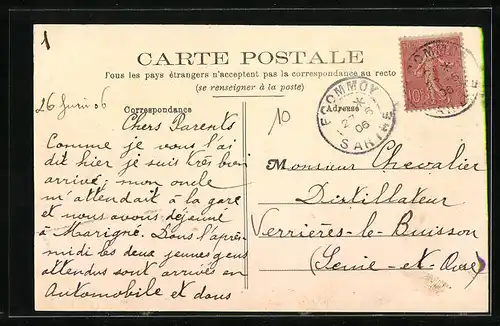 1
CARTE POSTALE
Tous les pays étrangers n'acceptent pas la correspondance au recto
(se renseigner à la poste)
26 Juin 06
Correspondance
Chers Parents
Comme je vous l'ai
dit hier je suis très bien
arrivé, mon oncle
m'attendait à la gare
et nous avons déjeuné
à Marigné. Dans l'après-
midi les deux jeunes gens
attendus sont arrivés en
Automobile et dans
10
Adresse
ECOMMOY
27
06
SARTHE
ECOMMOY
06
SARTHE
10
Monsieur Chevalier
Distillateur
Verrières-le-Buisson
(Seine-et-Oise)